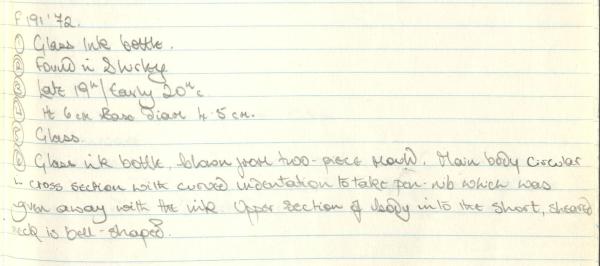 F191'72.
① Glass Ink bottle.
② Found in Shirley
③ Late 19th/Early 20th c.
④ Ht 6cm Base Diam 4.5cm.
⑤ Glass
⑥ Glass ink bottle, blown from two-piece mould. Main body circular
in cross section with curved indentation to take pen-nib which was
given away with the ink Upper section of body into the short, sheared
neck is bell-shaped.